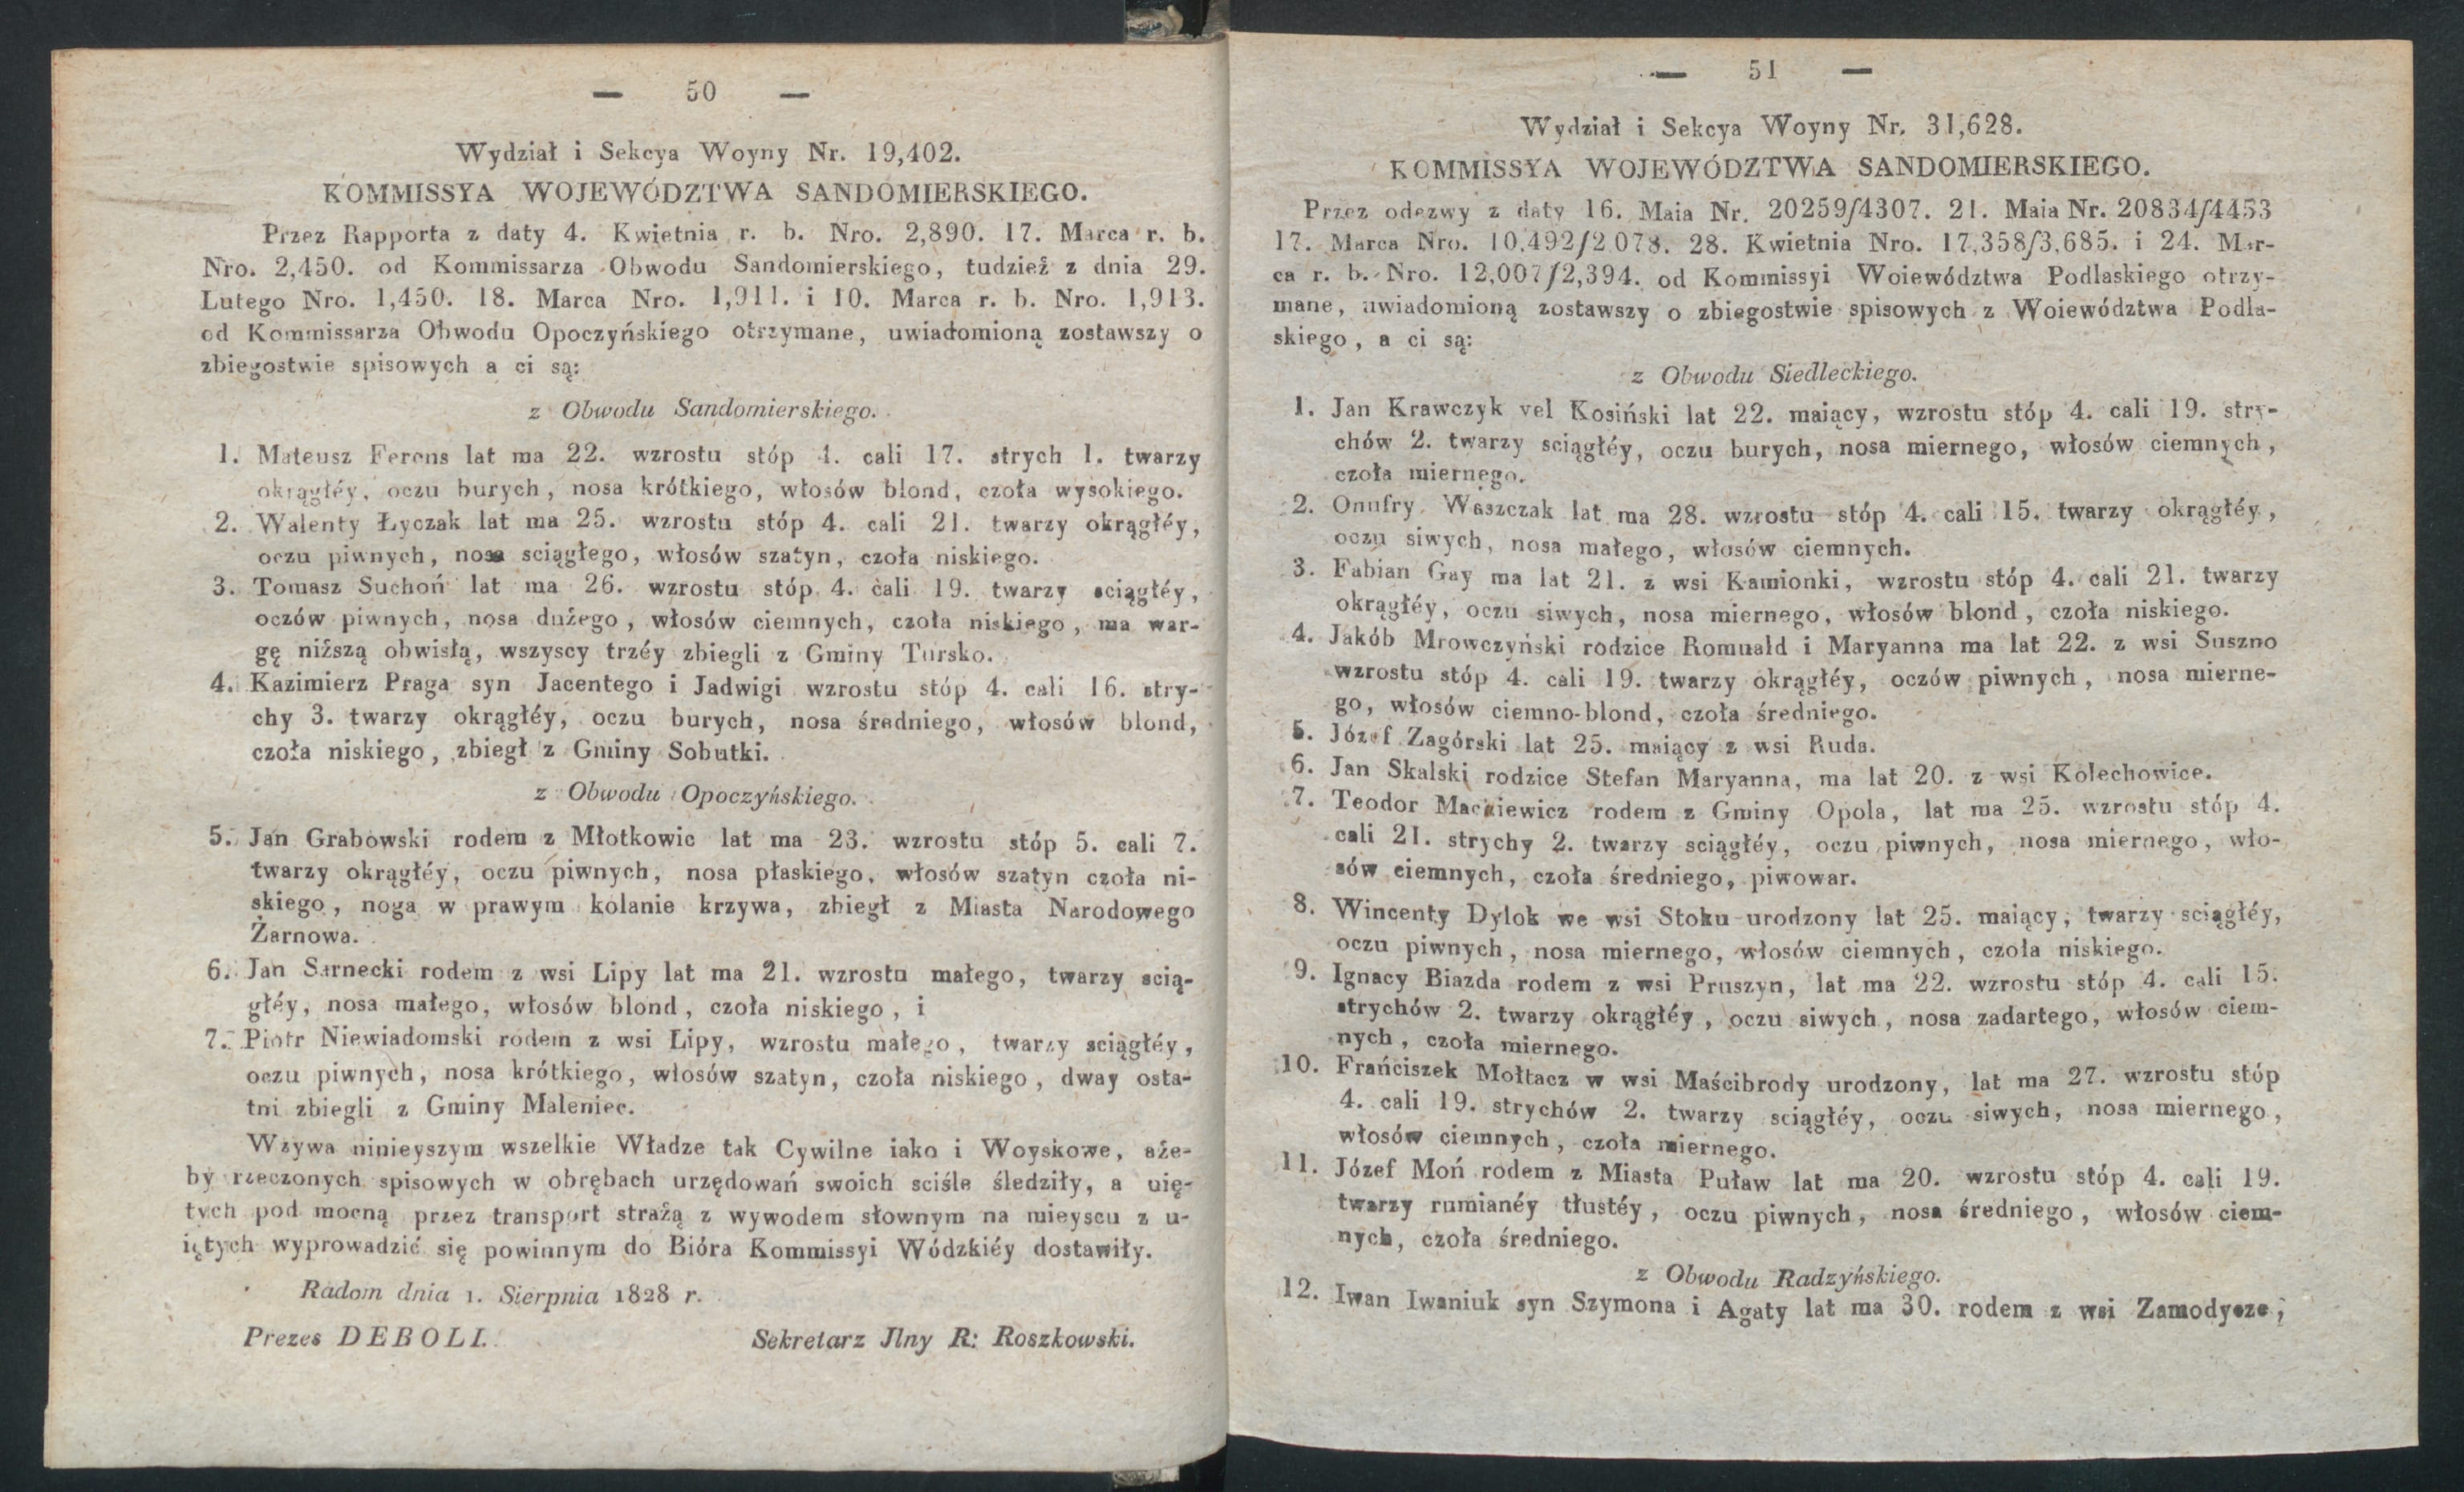 — 50 —
Wydział i Sekcya Woyny Nr. 19,402.
KOMMISSYA WOJEWÓDZTWA SANDOMIERSKIEGO.
Przez Rapporta z daty 4. Kwietnia r. b. Nro. 2,890. 17. Marca r. b.
Nro. 2,450. od Kommissarza Obwodu Sandomierskiego, tudzież z dnia 29.
Lutego Nro. 1,450. 18. Marca Nro. 1,911. i 10. Marca r. b. Nro. 1,913.
od Kommissarza Obwodu Opoczyńskiego otrzymane, uwiadomioną zostawszy o
zbiegostwie spisowych a ci są:
z Obwodu Sandomierskiego.
1. Mateusz Ferens lat ma 22. wzrostu stóp 4. cali 17. strych 1. twarzy
okrągłéy, oczu burych, nosa krótkiego, włosów blond, czoła wysokiego.
2. Walenty Łyczak lat ma 25. wzrostu stóp 4. cali 21. twarzy okrągłéy,
oczu piwnych, nosa sciągłego, włosów szatyn, czoła niskiego.
3. Tomasz Suchoń lat ma 26. wzrostu stóp 4. cali 19. twarzy sciągłéy,
oczów piwnych, nosa dużego, włosów ciemnych, czoła niskiego, ma war-
gę niższą obwisłą, wszyscy trzéy zbiegli z Gminy Tursko.
4. Kazimierz Praga syn Jacentego i Jadwigi wzrostu stóp 4. cali 16. stry-
chy 3. twarzy okrągłéy, oczu burych, nosa średniego, włosów blond,
czoła niskiego, zbiegł z Gminy Sobutki.
z Obwodu Opoczyńskiego.
5. Jan Grabowski rodem z Młotkowic lat ma 23. wzrostu stóp 5. cali 7.
twarzy okrągłéy, oczu piwnych, nosa płaskiego, włosów szatyn czoła ni-
skiego, noga w prawym kolanie krzywa, zbiegł z Miasta Narodowego
Żarnowa.
6. Jan Sarnecki rodem z wsi Lipy lat ma 21. wzrostu małego, twarzy scią-
głéy, nosa małego, włosów blond, czoła niskiego, i
7. Piotr Niewiadomski rodem z wsi Lipy, wzrostu małego, twarzy sciągłéy,
oczu piwnych, nosa krótkiego, włosów szatyn, czoła niskiego, dway osta-
tni zbiegli z Gminy Maleniec.
Wzywa ninieyszym wszelkie Władze tak Cywilne iako i Woyskowe, aże-
by rzeczonych spisowych w obrębach urzędowań swoich sciśle śledziły, a uię-
tych pod mocną przez transport strażą z wywodem słownym na mieyscu z u-
iętych wyprowadzić się powinnym do Bióra Kommissyi Wódzkiéy dostawiły.
Radom dnia 1. Sierpnia 1828 r.
Prezes DEBOLI. Sekretarz Jlny R: Roszkowski.
— 51 —
Wydział i Sekcya Woyny Nr. 31,628.
KOMMISSYA WOJEWÓDZTWA SANDOMIERSKIEGO.
Przez odezwy z daty 16. Maia Nr. 20259/4307. 21. Maia Nr. 20834/4453
17. Marca Nro. 10,492/2,078. 28. Kwietnia Nro. 17,358/3,685. i 24. Mar-
ca r. b. Nro. 12,007/2,394. od Kommissyi Woiewództwa Podlaskiego otrzy-
mane, uwiadomioną zostawszy o zbiegostwie spisowych z Woiewództwa Podla-
skiego, a ci są:
z Obwodu Siedleckiego.
1. Jan Krawczyk vel Kosiński lat 22. maiący, wzrostu stóp 4. cali 19. stry-
chów 2. twarzy sciągłéy, oczu burych, nosa miernego, włosów ciemnych,
czoła miernego.
2. Onufry Waszczak lat ma 28. wzrostu stóp 4. cali 15. twarzy okrągłéy,
oczu siwych, nosa małego, włosów ciemnych.
3. Fabian Gay ma lat 21. z wsi Kamionki, wzrostu stóp 4. cali 21. twarzy
okrągłéy, oczu siwych, nosa miernego, włosów blond, czoła niskiego.
4. Jakób Mrowczyński rodzice Romuald i Maryanna ma lat 22. z wsi Suszno
wzrostu stóp 4. cali 19. twarzy okrągłéy, oczów piwnych, nosa mierne-
go, włosów ciemno-blond, czoła średniego.
5. Józef Zagórski lat 25. maiący z wsi Ruda.
6. Jan Skalski rodzice Stefan Maryanna, ma lat 20. z wsi Kolechowice.
7. Teodor Mackiewicz rodem z Gminy Opola, lat ma 25. wzrostu stóp 4.
cali 21. strychy 2. twarzy sciągłéy, oczu piwnych, nosa miernego, wło-
sów ciemnych, czoła średniego, piwowar.
8. Wincenty Dylok we wsi Stoku urodzony lat 25. maiący, twarzy sciągłéy,
oczu piwnych, nosa miernego, włosów ciemnych, czoła niskiego.
9. Ignacy Biazda rodem z wsi Pruszyn, lat ma 22. wzrostu stóp 4. cali 15.
strychów 2. twarzy okrągłéy, oczu siwych, nosa zadartego, włosów ciem-
nych, czoła miernego.
10. Frańciszek Mołtacz w wsi Maścibrody urodzony, lat ma 27. wzrostu stóp
4. cali 19. strychów 2. twarzy sciągłéy, oczu siwych, nosa miernego,
włosów ciemnych, czoła miernego.
11. Józef Moń rodem z Miasta Puław lat ma 20. wzrostu stóp 4. cali 19.
twarzy rumianéy tłustéy, oczu piwnych, nosa średniego, włosów ciem-
nych, czoła średniego.
z Obwodu Radzyńskiego.
12. Iwan Iwaniuk syn Szymona i Agaty lat ma 30. rodem z wsi Zamodycze,